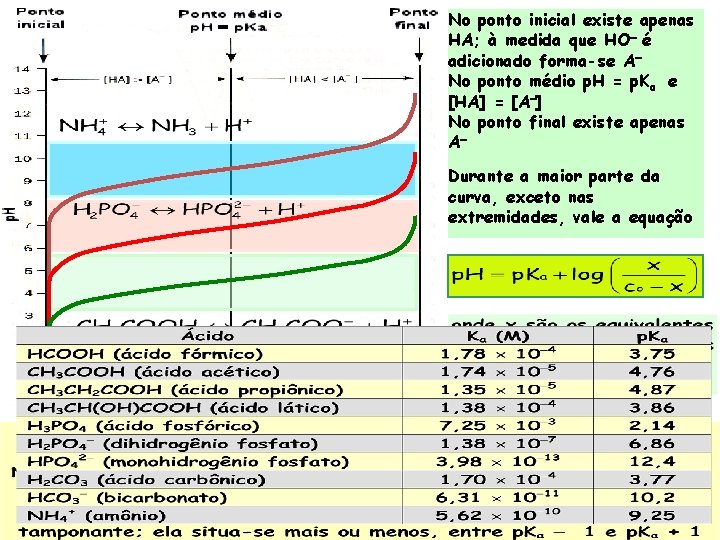 Ponto inicial
Ponto médio
pH = pKa
Ponto final
[HA] > [A⁻]
[HA] < [A⁻]
14
13
12
11
10
9
8
7
6
5
4
3
pH
NH₄⁺ ↔ NH₃ + H⁺
H₂PO₄⁻ ↔ HPO₄²⁻ + H⁺
No ponto inicial existe apenas
HA; à medida que HO⁻ é
adicionado forma-se A⁻
No ponto médio pH = pKₐ e
[HA] = [A⁻]
No ponto final existe apenas
A⁻
Durante a maior parte da
curva, exceto nas
extremidades, vale a equação
pH = pKₐ + log (x / (c₀ − x))
onde x são os equivalentes
Ácido Kₐ (M) pKₐ
HCOOH (ácido fórmico) 1,78 × 10⁻⁴ 3,75
CH₃COOH (ácido acético) 1,74 × 10⁻⁵ 4,76
CH₃CH₂COOH (ácido propiônico) 1,35 × 10⁻⁵ 4,87
CH₃CH(OH)COOH (ácido lático) 1,38 × 10⁻⁴ 3,86
H₃PO₄ (ácido fosfórico) 7,25 × 10⁻³ 2,14
H₂PO₄⁻ (dihidrogênio fosfato) 1,38 × 10⁻⁷ 6,86
HPO₄²⁻ (monohidrogênio fosfato) 3,98 × 10⁻¹³ 12,4
H₂CO₃ (ácido carbônico) 1,70 × 10⁻⁴ 3,77
HCO₃⁻ (bicarbonato) 6,31 × 10⁻¹¹ 10,2
NH₄⁺ (amônio) 5,62 × 10⁻¹⁰ 9,25
tamponante; ela situa-se mais ou menos, entre pKₐ − 1 e pKₐ + 1